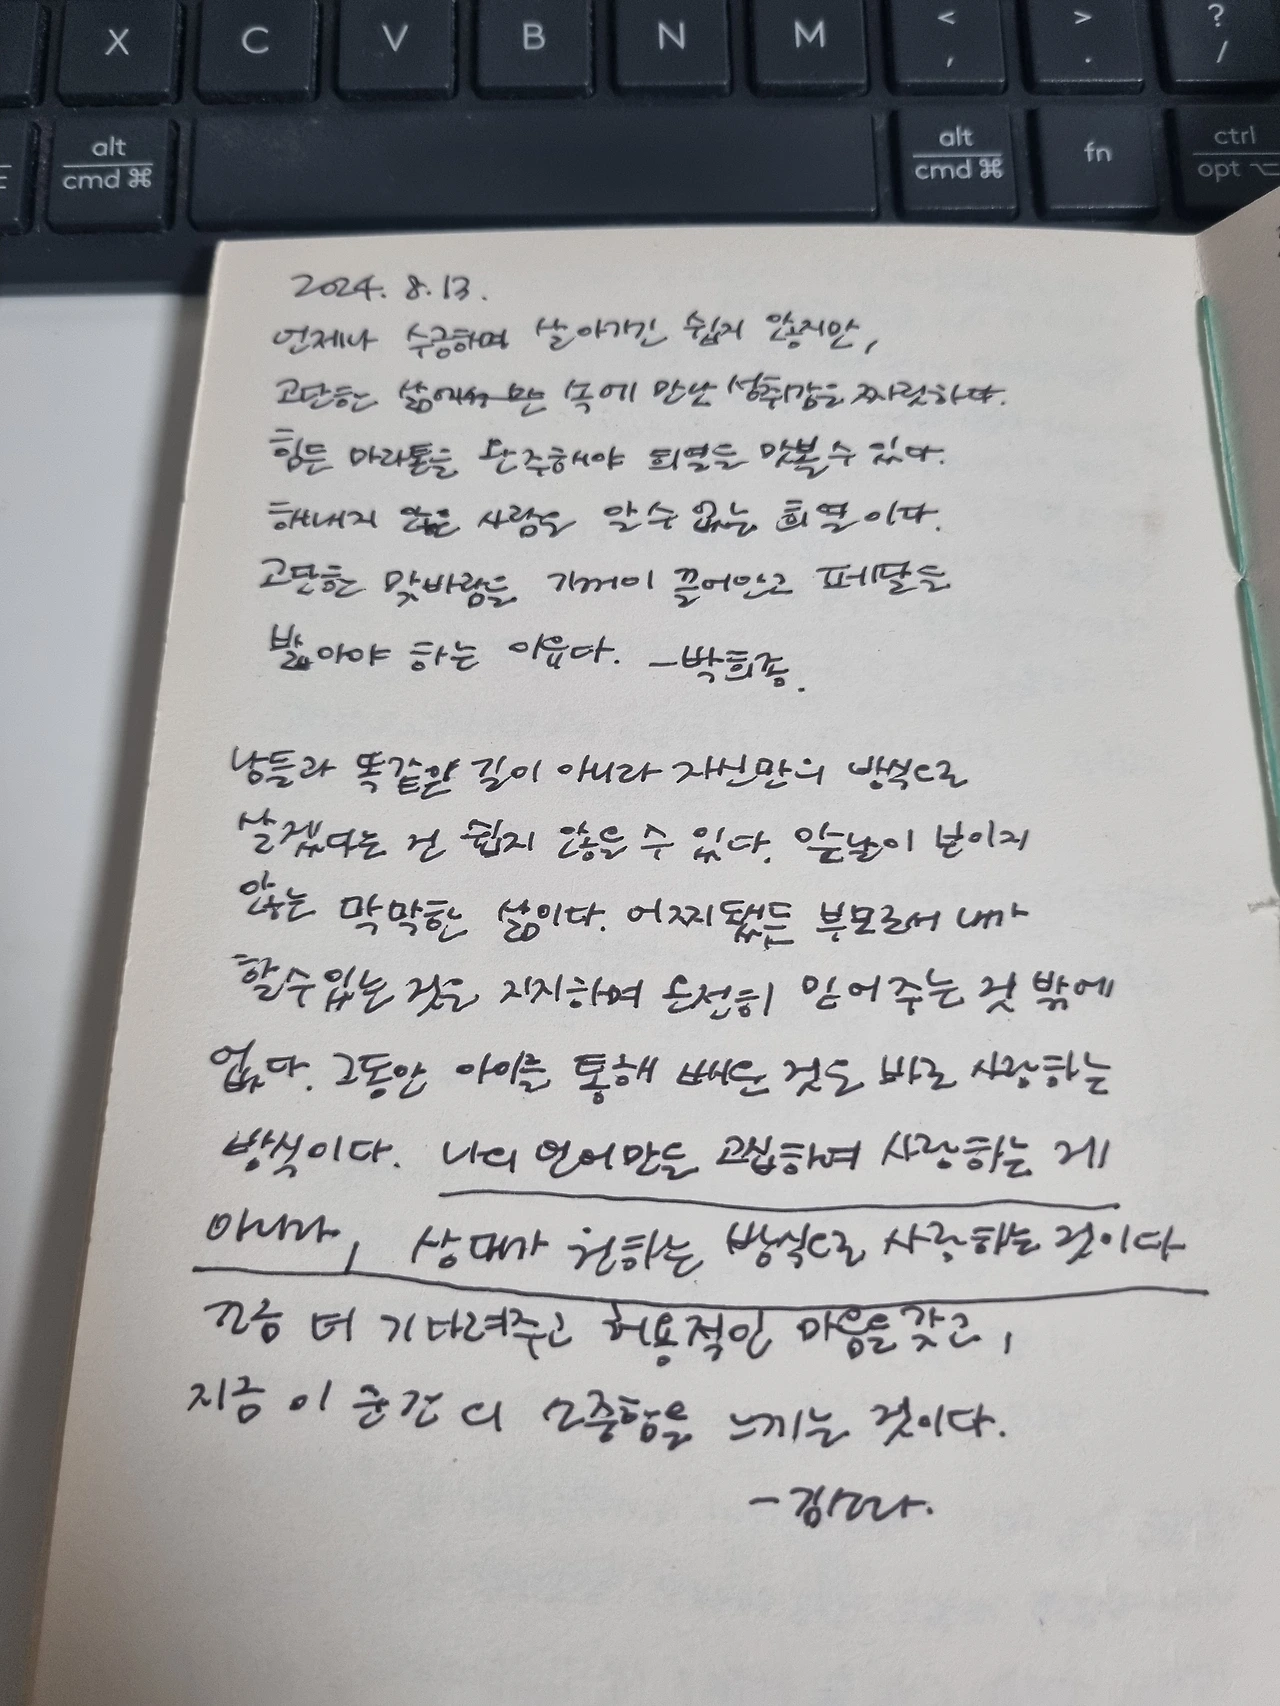 X C V B N M < , > . ? /
alt cmd ⌘ alt cmd ⌘ fn ctrl opt ⌥
2024. 8. 13.
언제나 수긍하며 살아가긴 쉽지 않지만,
고단한 삶에서 속에 만난 성취감은 짜릿하다.
힘든 마라톤을 완주해야 희열을 맛볼 수 있다.
해내지 않은 사람은 알 수 없는 희열이다.
고단한 맞바람을 기꺼이 끌어안고 페달을
밟아야 하는 이유다. -박희종.
남들과 똑같은 길이 아니라 자신만의 방식으로
살겠다는 건 쉽지 않을 수 있다. 앞날이 보이지
않는 막막한 삶이다. 어찌됐든 부모로서 내가
할 수 있는 것은 지지하며 온전히 믿어주는 것 밖에
없다. 그동안 아이를 통해 배운 것은 바로 사랑하는
방식이다. 나의 언어만을 고집하며 사랑하는 게
아니라, 상대가 원하는 방식으로 사랑하는 것이다
조금 더 기다려주고 허용적인 마음을 갖고,
지금 이 순간의 소중함을 느끼는 것이다.